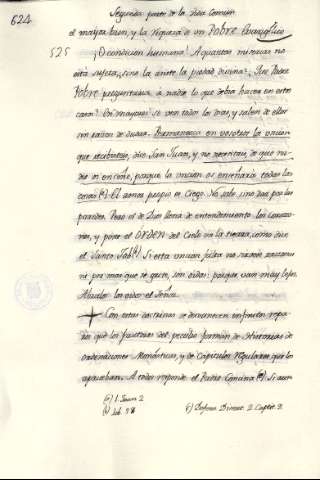 624
Segunda parte de la Vida Comun
el mayor bien, y la riqueza de un Pobre Evangelico
525 ¡O condicion humana! A quantas miserias no
está sujeta, sino la asiste la piedad divina! ¿Ese Padre
Pobre preguntaria à nadie lo que debia hacer en este
caso? En mayores se ven todos los dias, y salen de ellos
sin rastro de dudas. Permanezca en vosotros la uncion
que recibisteis, dice San Juan, y no necesitais de que na-
die os enseñe, porque la uncion os enseñará todas las
cosas (a) El amor propio es Ciego. No sabe sino dar por las
paredes. Pero el de Dios llena de entendimiento los corazo-
nes, y pone el ORDEN del Cielo en la tierra, como dice
el Santo Job (b) Si esta uncion falta no
ni por mas que se grite, son oidas: porque van muy lejos
los oidos el
Con estas doctrinas se desvanecen infinitos repa-
ros que los fautores del peculio forman de Historias de
ordenaciones Monásticas, y de Capitulos regulares que lo
aprueban. A todos responde el Padre Concina (c) Si aun
(a) 1. Joan 2
(b) Job. 38
(c) Defens. Decret. 2. Capit. 9.